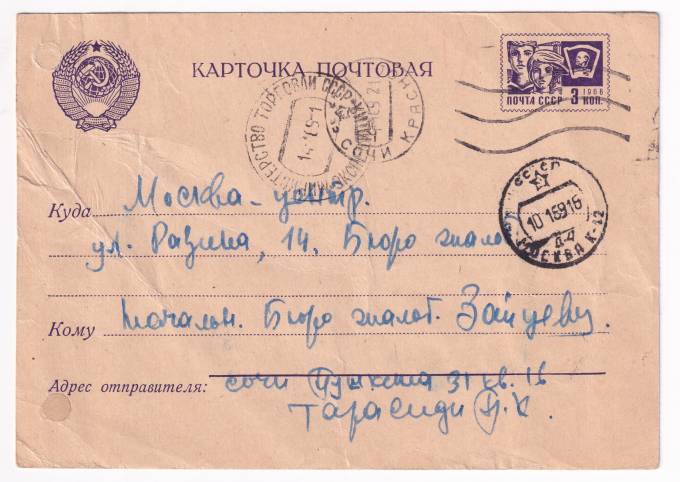 КАРТОЧКА ПОЧТОВАЯ
1966
ПОЧТА СССР 3 КОП.
МИНИСТЕРСТВО ТОРГОВЛИ СССР
СОЧИ КРАСН
СССР
10 1 69 16
Д-4
МОСКВА К-12
Куда Москва-центр.
ул. Разина, 14. Бюро жалоб
Кому Начальн. Бюро жалоб. Зайцеву.
Адрес отправителя: Сочи Пушкина 31 кв. 16